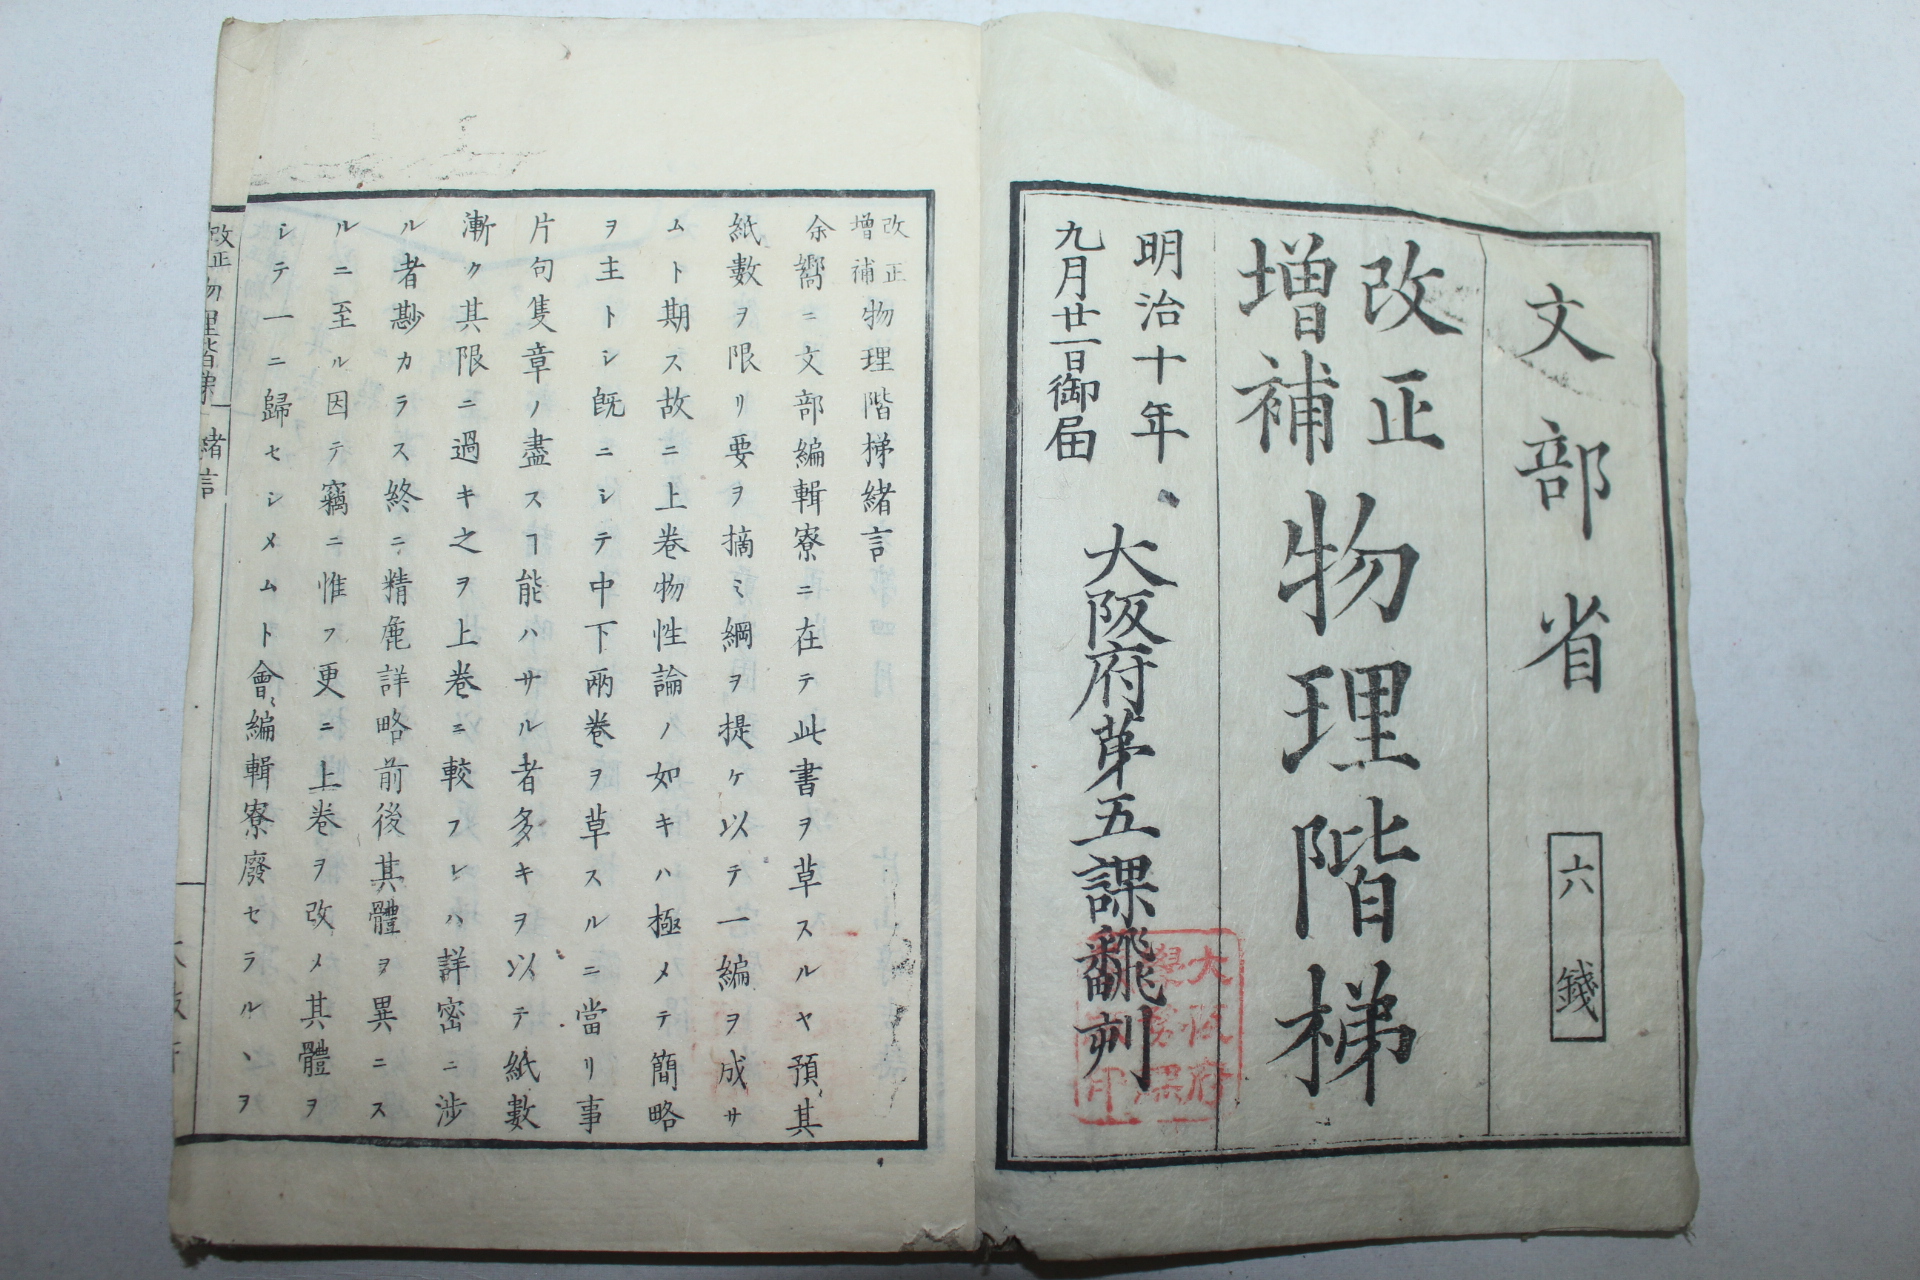 文部省
六錢
改正
增補
物理階梯
明治十年
九月廿一日御届
大阪府第五課飜刻
大阪府
改正
增補
物理階梯緒言
余嚮ニ文部編輯寮ニ在テ此書ヲ草スルヤ預、其
紙數ヲ限リ要ヲ摘ミ綱ヲ提ケ以テ一編ヲ成サ
ムト期ス故ニ上卷物性論ノ如キハ極メテ簡略
ヲ主トシ旣ニシテ中下兩卷ヲ草スルニ當リ事
片句隻章ノ盡スヿ能ハサル者多キヲ以テ紙數
漸ク其限ニ過キ之ヲ上卷ニ較フレハ詳密ニ涉
ル者尠カラス終ニ精麁詳略前後其體ヲ異ニス
ルニ至ル因テ竊ニ惟フ更ニ上卷ヲ改メ其體ヲ
シテ一ニ歸セシメムト會、編輯寮廢セラルヽヲ
改正物理階梯
緒言